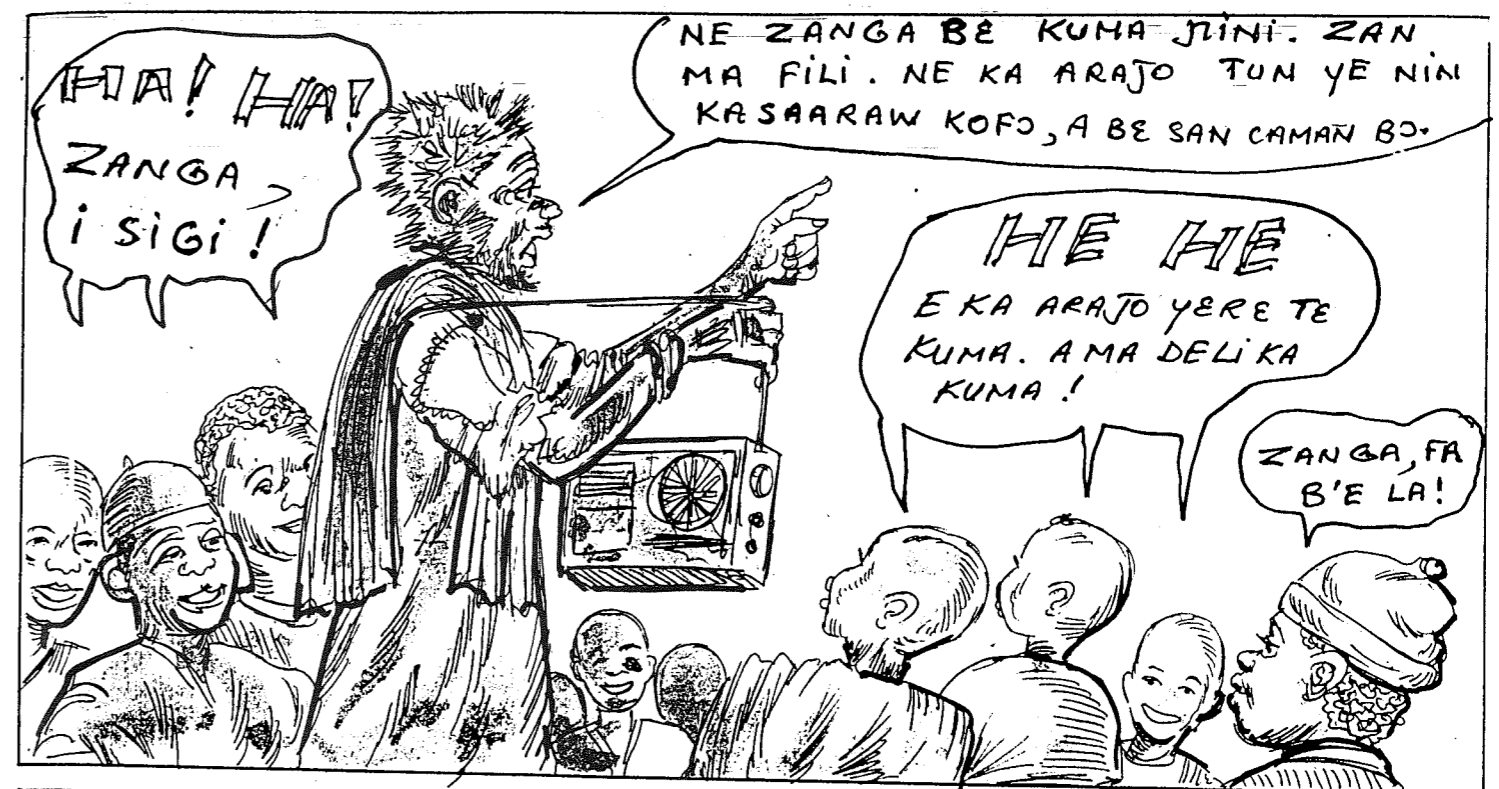 HA! HA!
ZANGA,
i SiGi!
NE ZANGA BƐ KUMA ɲiNi. ZAN
MA FiLi. NE KA ARAJO TUN YE NiN
KASAARAW KOFƆ, A BƐ SAN CAMAN BƆ.
HE HE
E KA ARAJO YƐRƐ TE
KUMA. A MA DELi KA
KUMA!
ZANGA, FA
B'E LA!